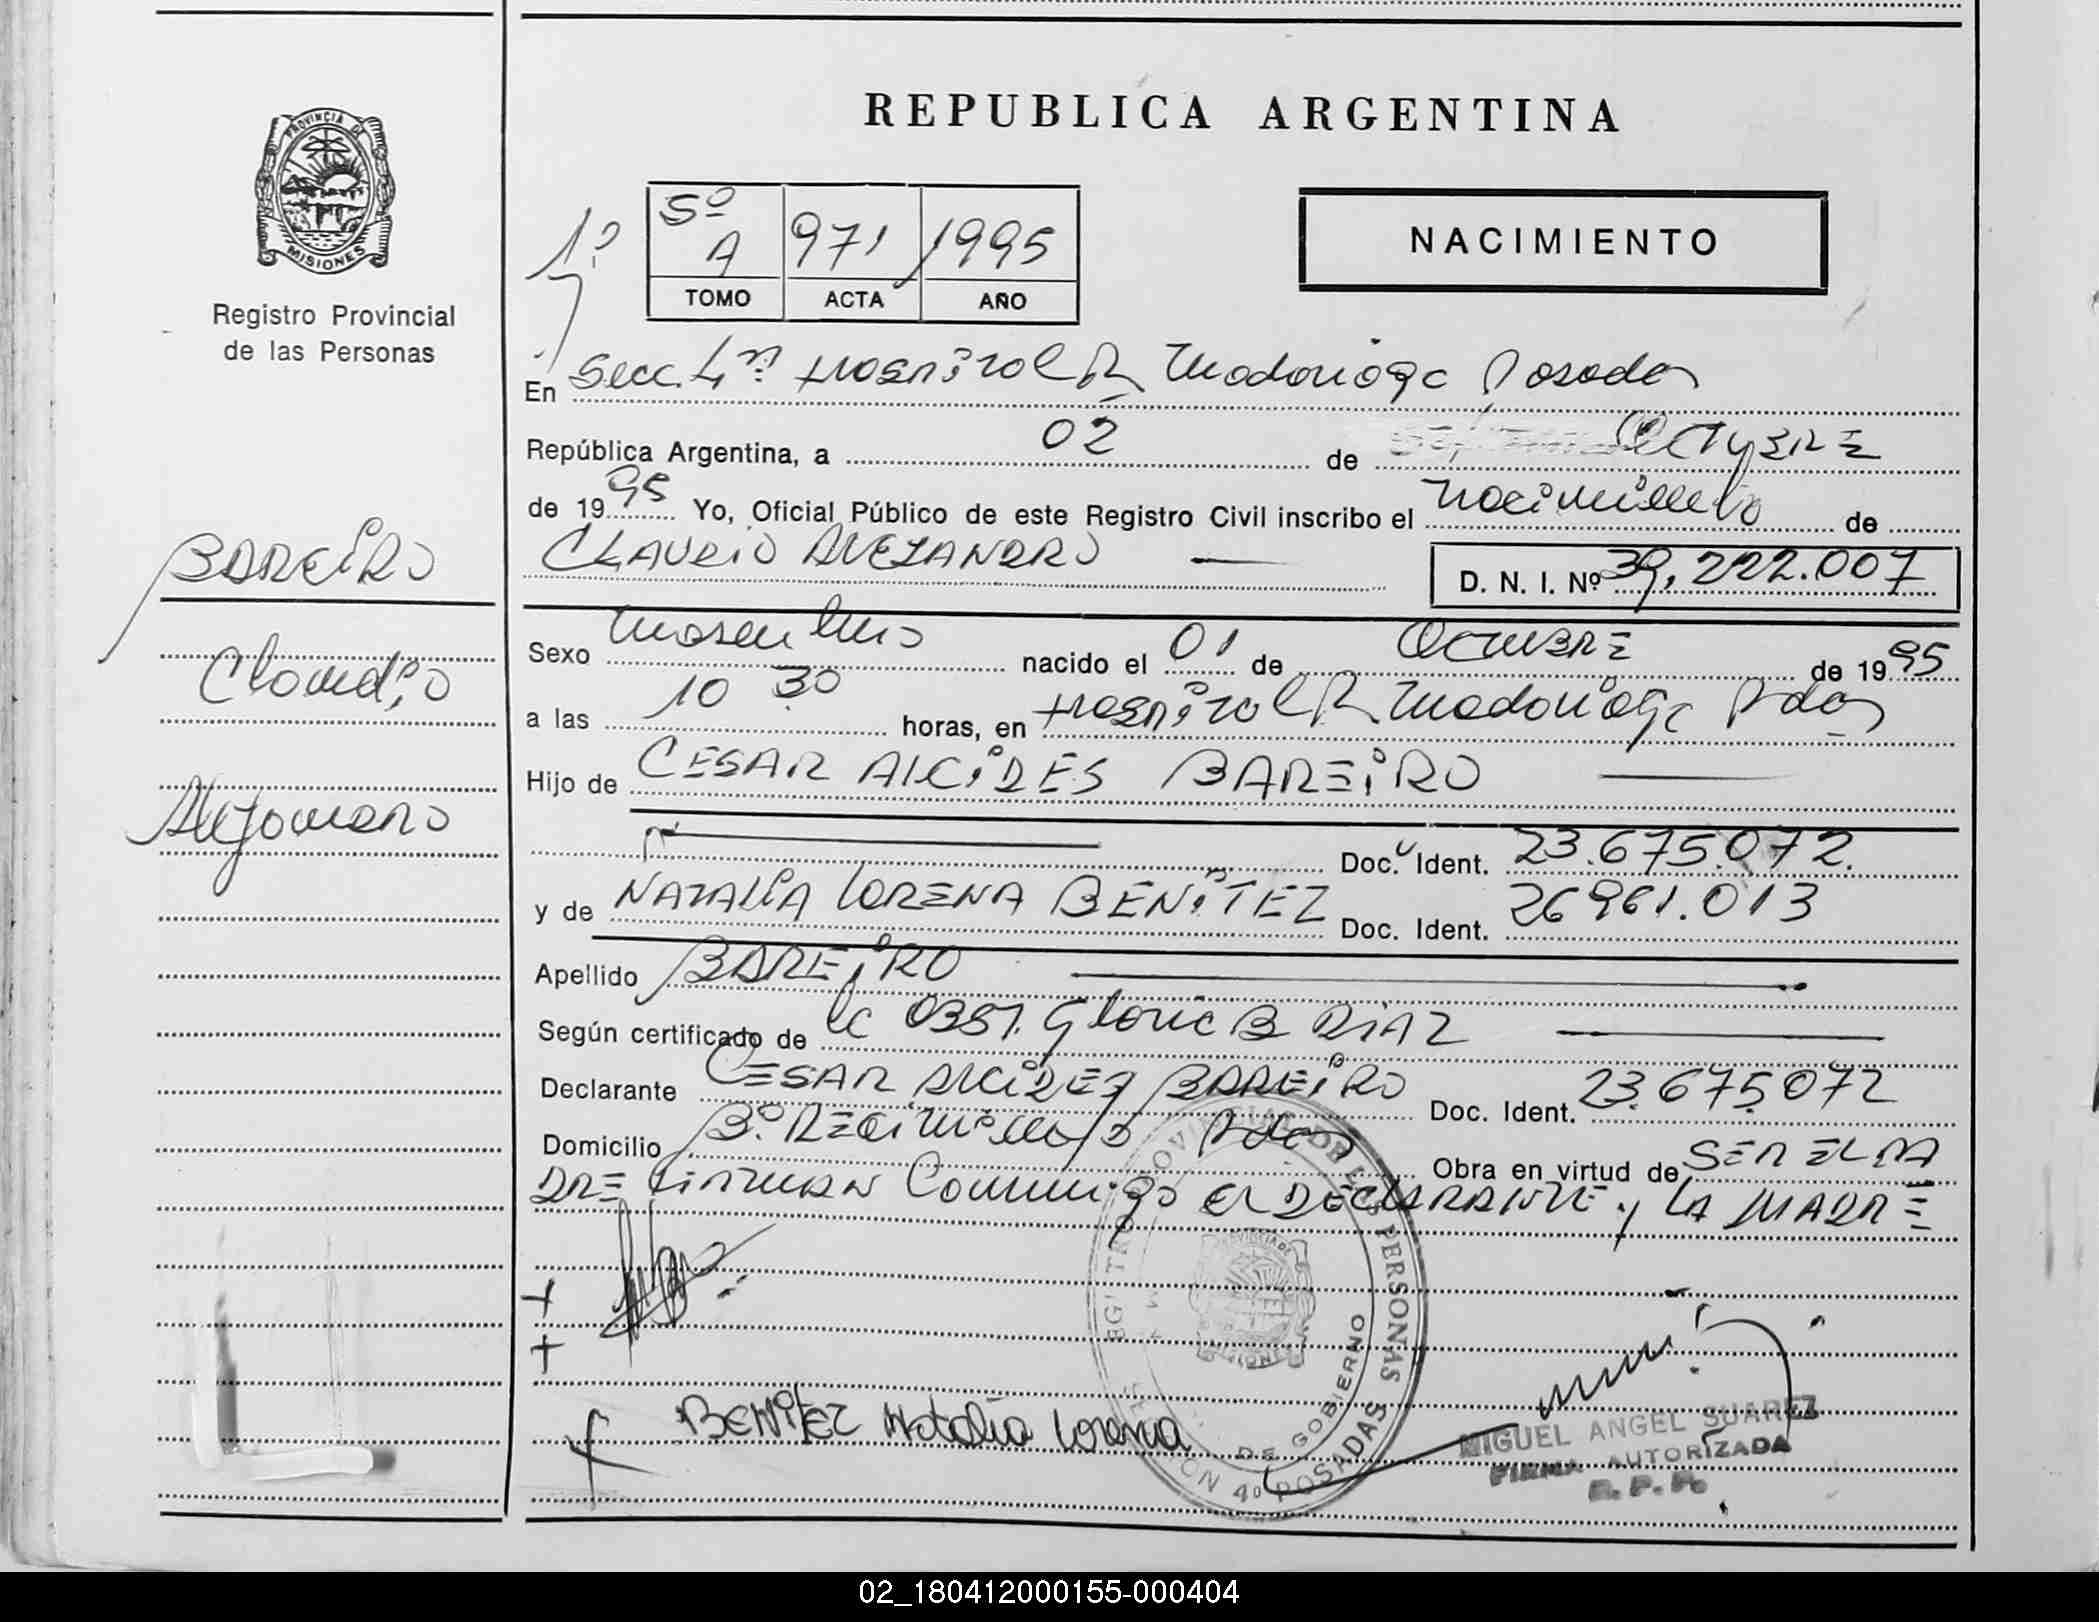 REPUBLICA ARGENTINA
PROVINCIA DE
MISIONES
Registro Provincial
de las Personas
1º
5º A 971 1995
TOMO ACTA AÑO
NACIMIENTO
En Secc. 4ª Hospital R Madariaga Posadas
República Argentina, a 02 de Octubre
de 1995 Yo, Oficial Público de este Registro Civil inscribo el nacimiento de
CLAUDIO ALEJANDRO D. N. I. Nº 39.222.007
BAREIRO
Claudio
Alejandro
Sexo masculino nacido el 01 de Octubre de 1995
a las 10 30 horas, en Hospital R. Madariaga Pdas
Hijo de CESAR ALCIDES BAREIRO
Doc. Ident. 23.675.072.
y de NATALIA LORENA BENITEZ Doc. Ident. 26961.013
Apellido BAREIRO
Según certificado de 0351. Gloria B DIAZ
Declarante CESAR ALCIDES BAREIRO Doc. Ident. 23.675072
Domicilio Bº. Pdas Obra en virtud de SER EL PA
DRE Firman Conmigo el DECLARANTE y LA MADRE
BENITEZ Natalia Lorena
PROVINCIAL DE LAS PERSONAS
DE GOBIERNO
4º POSADAS
MIGUEL ANGEL SUAREZ
FIRMA AUTORIZADA
R. P. P.
02_180412000155-000404